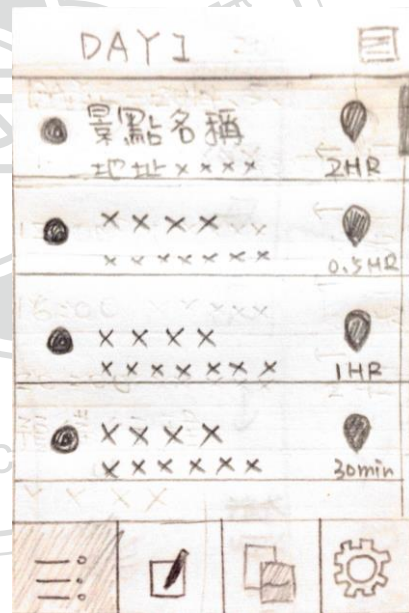 DAY1
景點名稱
地址××××
2HR
××××
×××××××
0.5HR
××××
×××××××
1HR
××××
××××××
30min